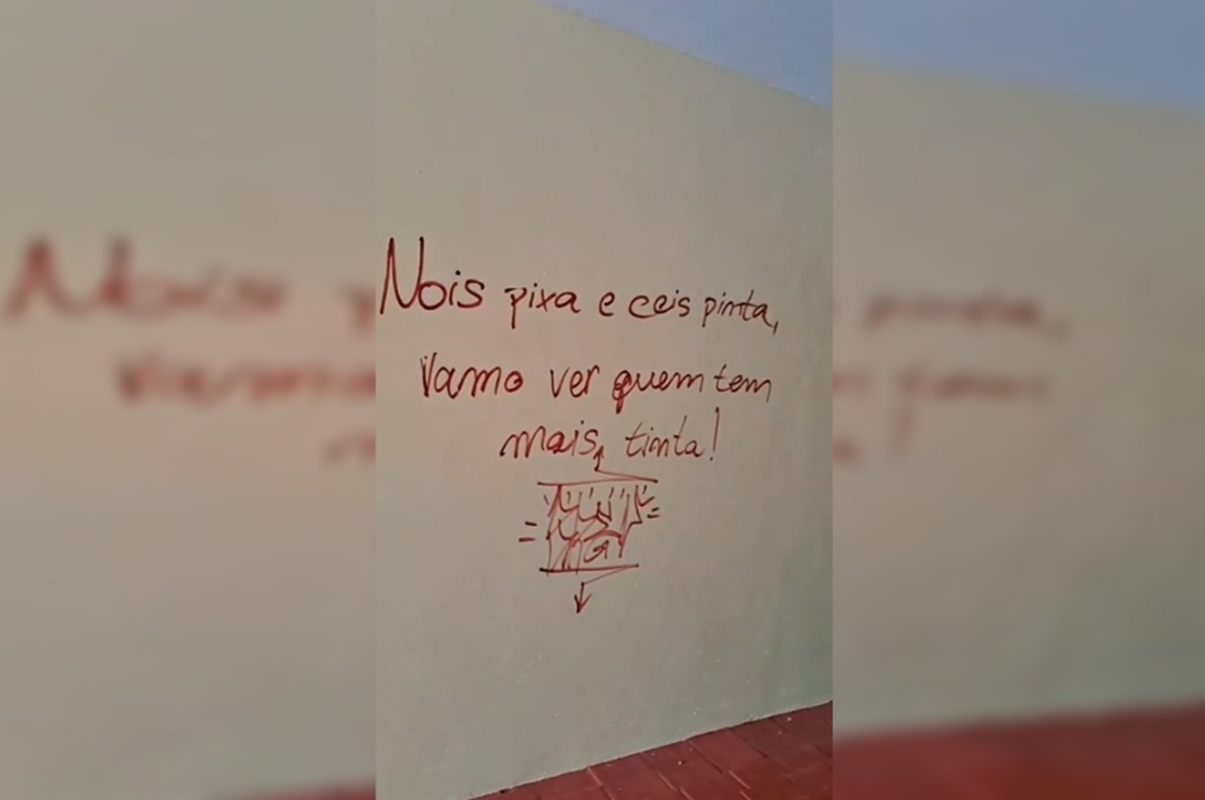 Nois pixa e ceis pinta,
Vamo ver quem tem
mais tinta!